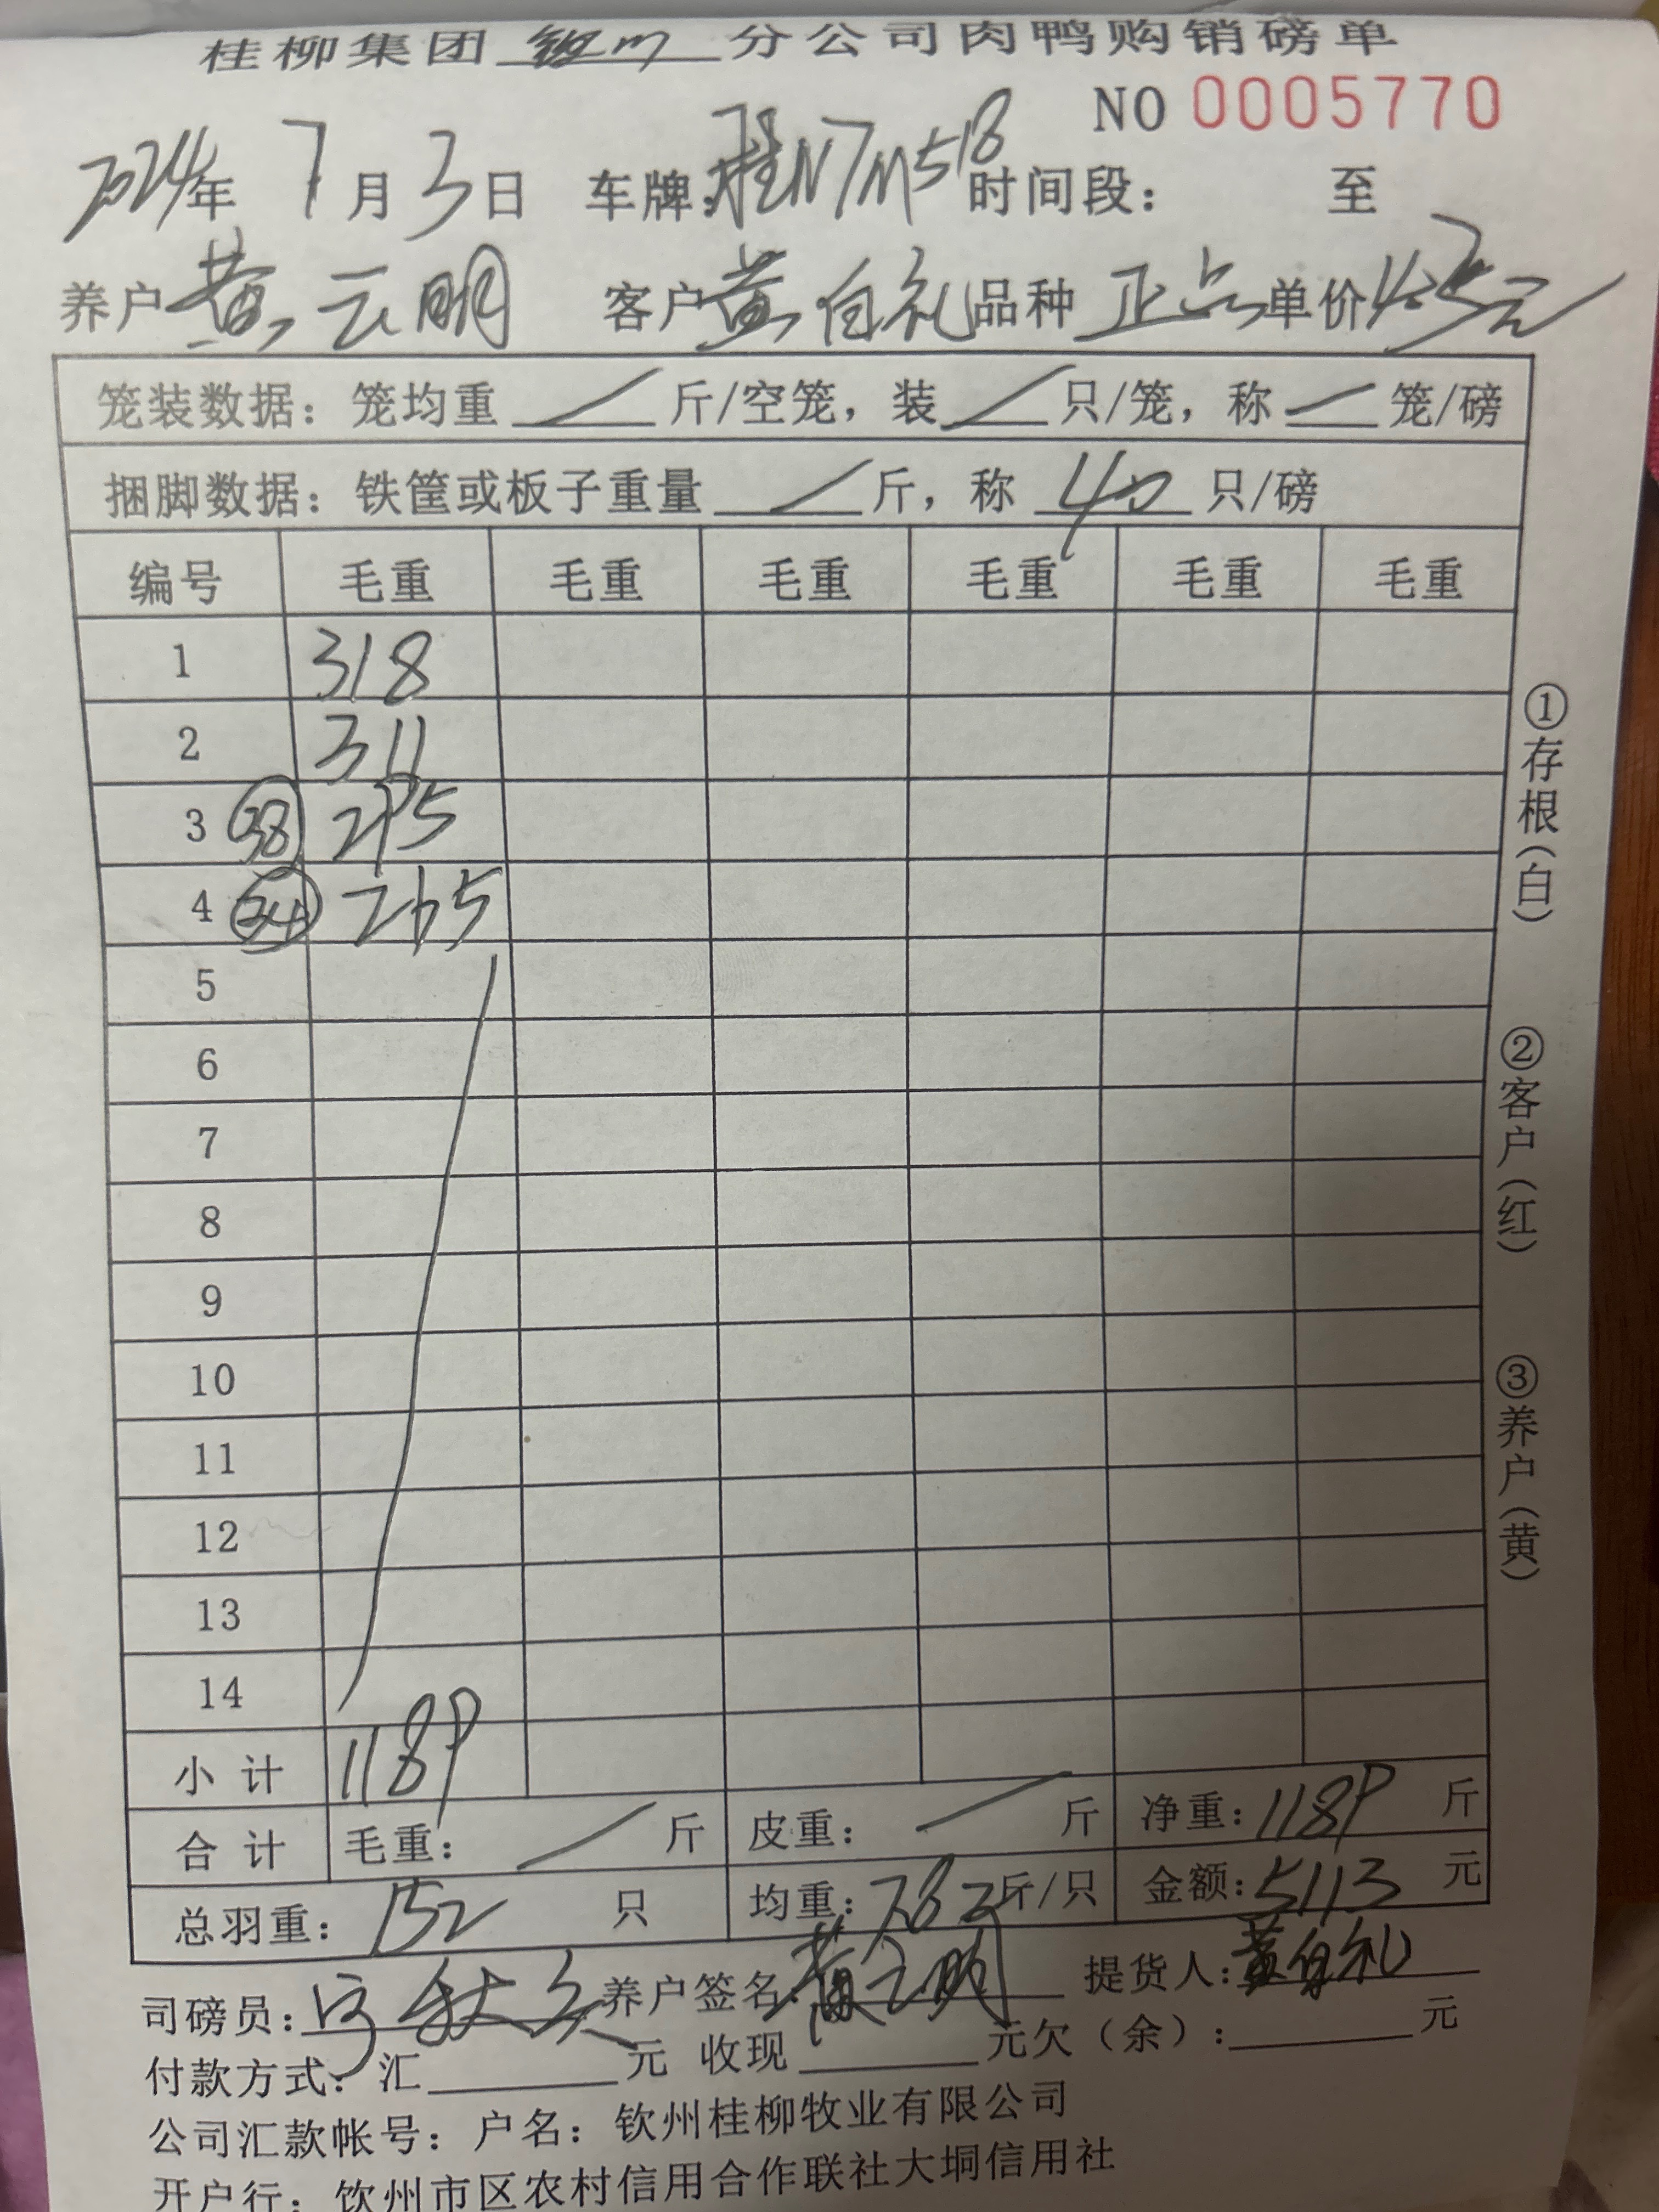 桂柳集团钦州分公司肉鸭购销磅单
NO 0005770
2024年 7月3日 车牌:桂N7M518 时间段: 至
养户 黄云明 客户 黄自礼 品种 正品 单价 4.3元
笼装数据:笼均重 / 斤/空笼,装 / 只/笼,称 / 笼/磅
捆脚数据:铁筐或板子重量 / 斤,称 40 只/磅
编号 毛重 毛重 毛重 毛重 毛重 毛重
1 318
2 311
3 38 295
4 34 265
5
6
7
8
9
10
11
12
13
14
小计 1189
合计 毛重: / 斤 皮重: / 斤 净重:1189 斤
总羽重:152 只 均重:7.82斤/只 金额:5113 元
司磅员: 养户签名:黄云明 提货人:黄自礼
付款方式:汇 元 收现 元欠(余): 元
公司汇款帐号:户名:钦州桂柳牧业有限公司
开户行:钦州市区农村信用合作联社大垌信用社
①存根(白)
②客户(红)
③养户(黄)